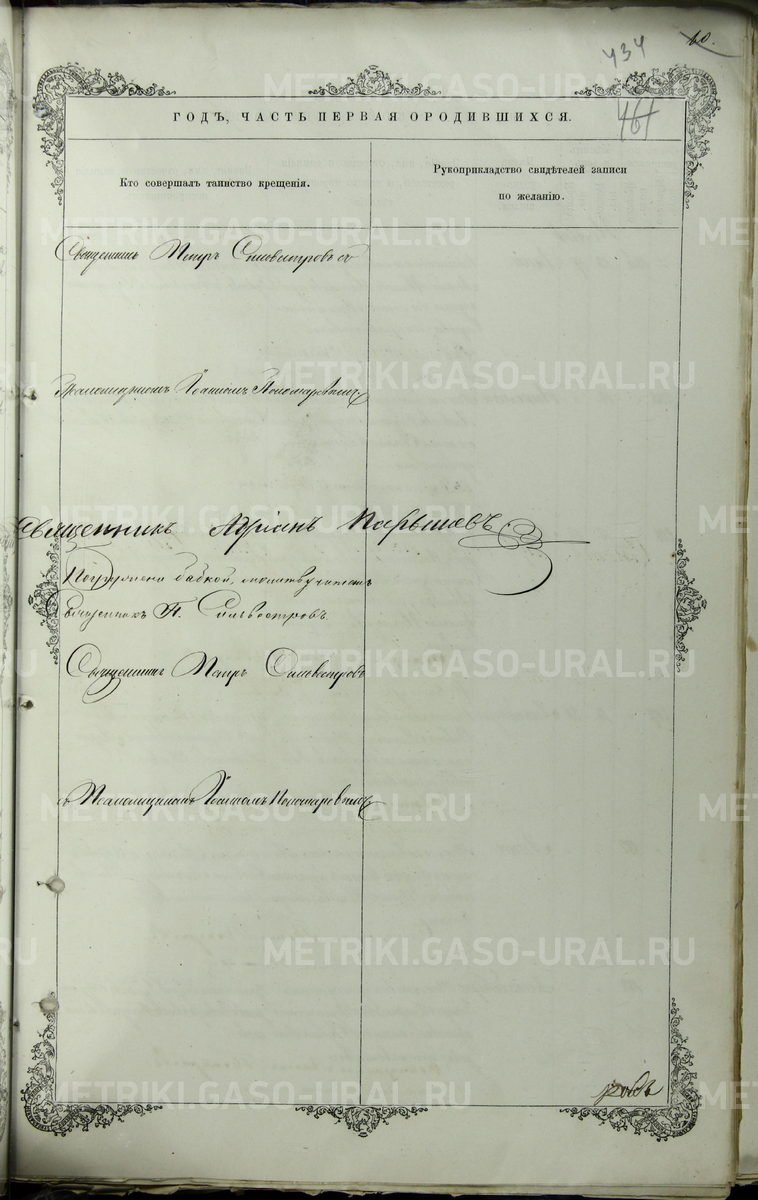 60.
434
461
METRIKI.GASO-URAL.RU
ГОДЪ, ЧАСТЬ ПЕРВАЯ ОРОДИВШИХСЯ.
Кто совершалъ таинство крещенія.
Рукоприкладство свидѣтелей записи
по желанію.
Священникъ Петръ Сильвестровъ съ
Псаломщикомъ Іоанномъ Пономаревымъ
Священникъ Адріанъ Карвшевъ
Погружена бабкой, молитв.
Священникъ П. Сильвестровъ
Священникъ Петръ Сильвестровъ
съ Псаломщикомъ Іоанномъ Пономаревымъ